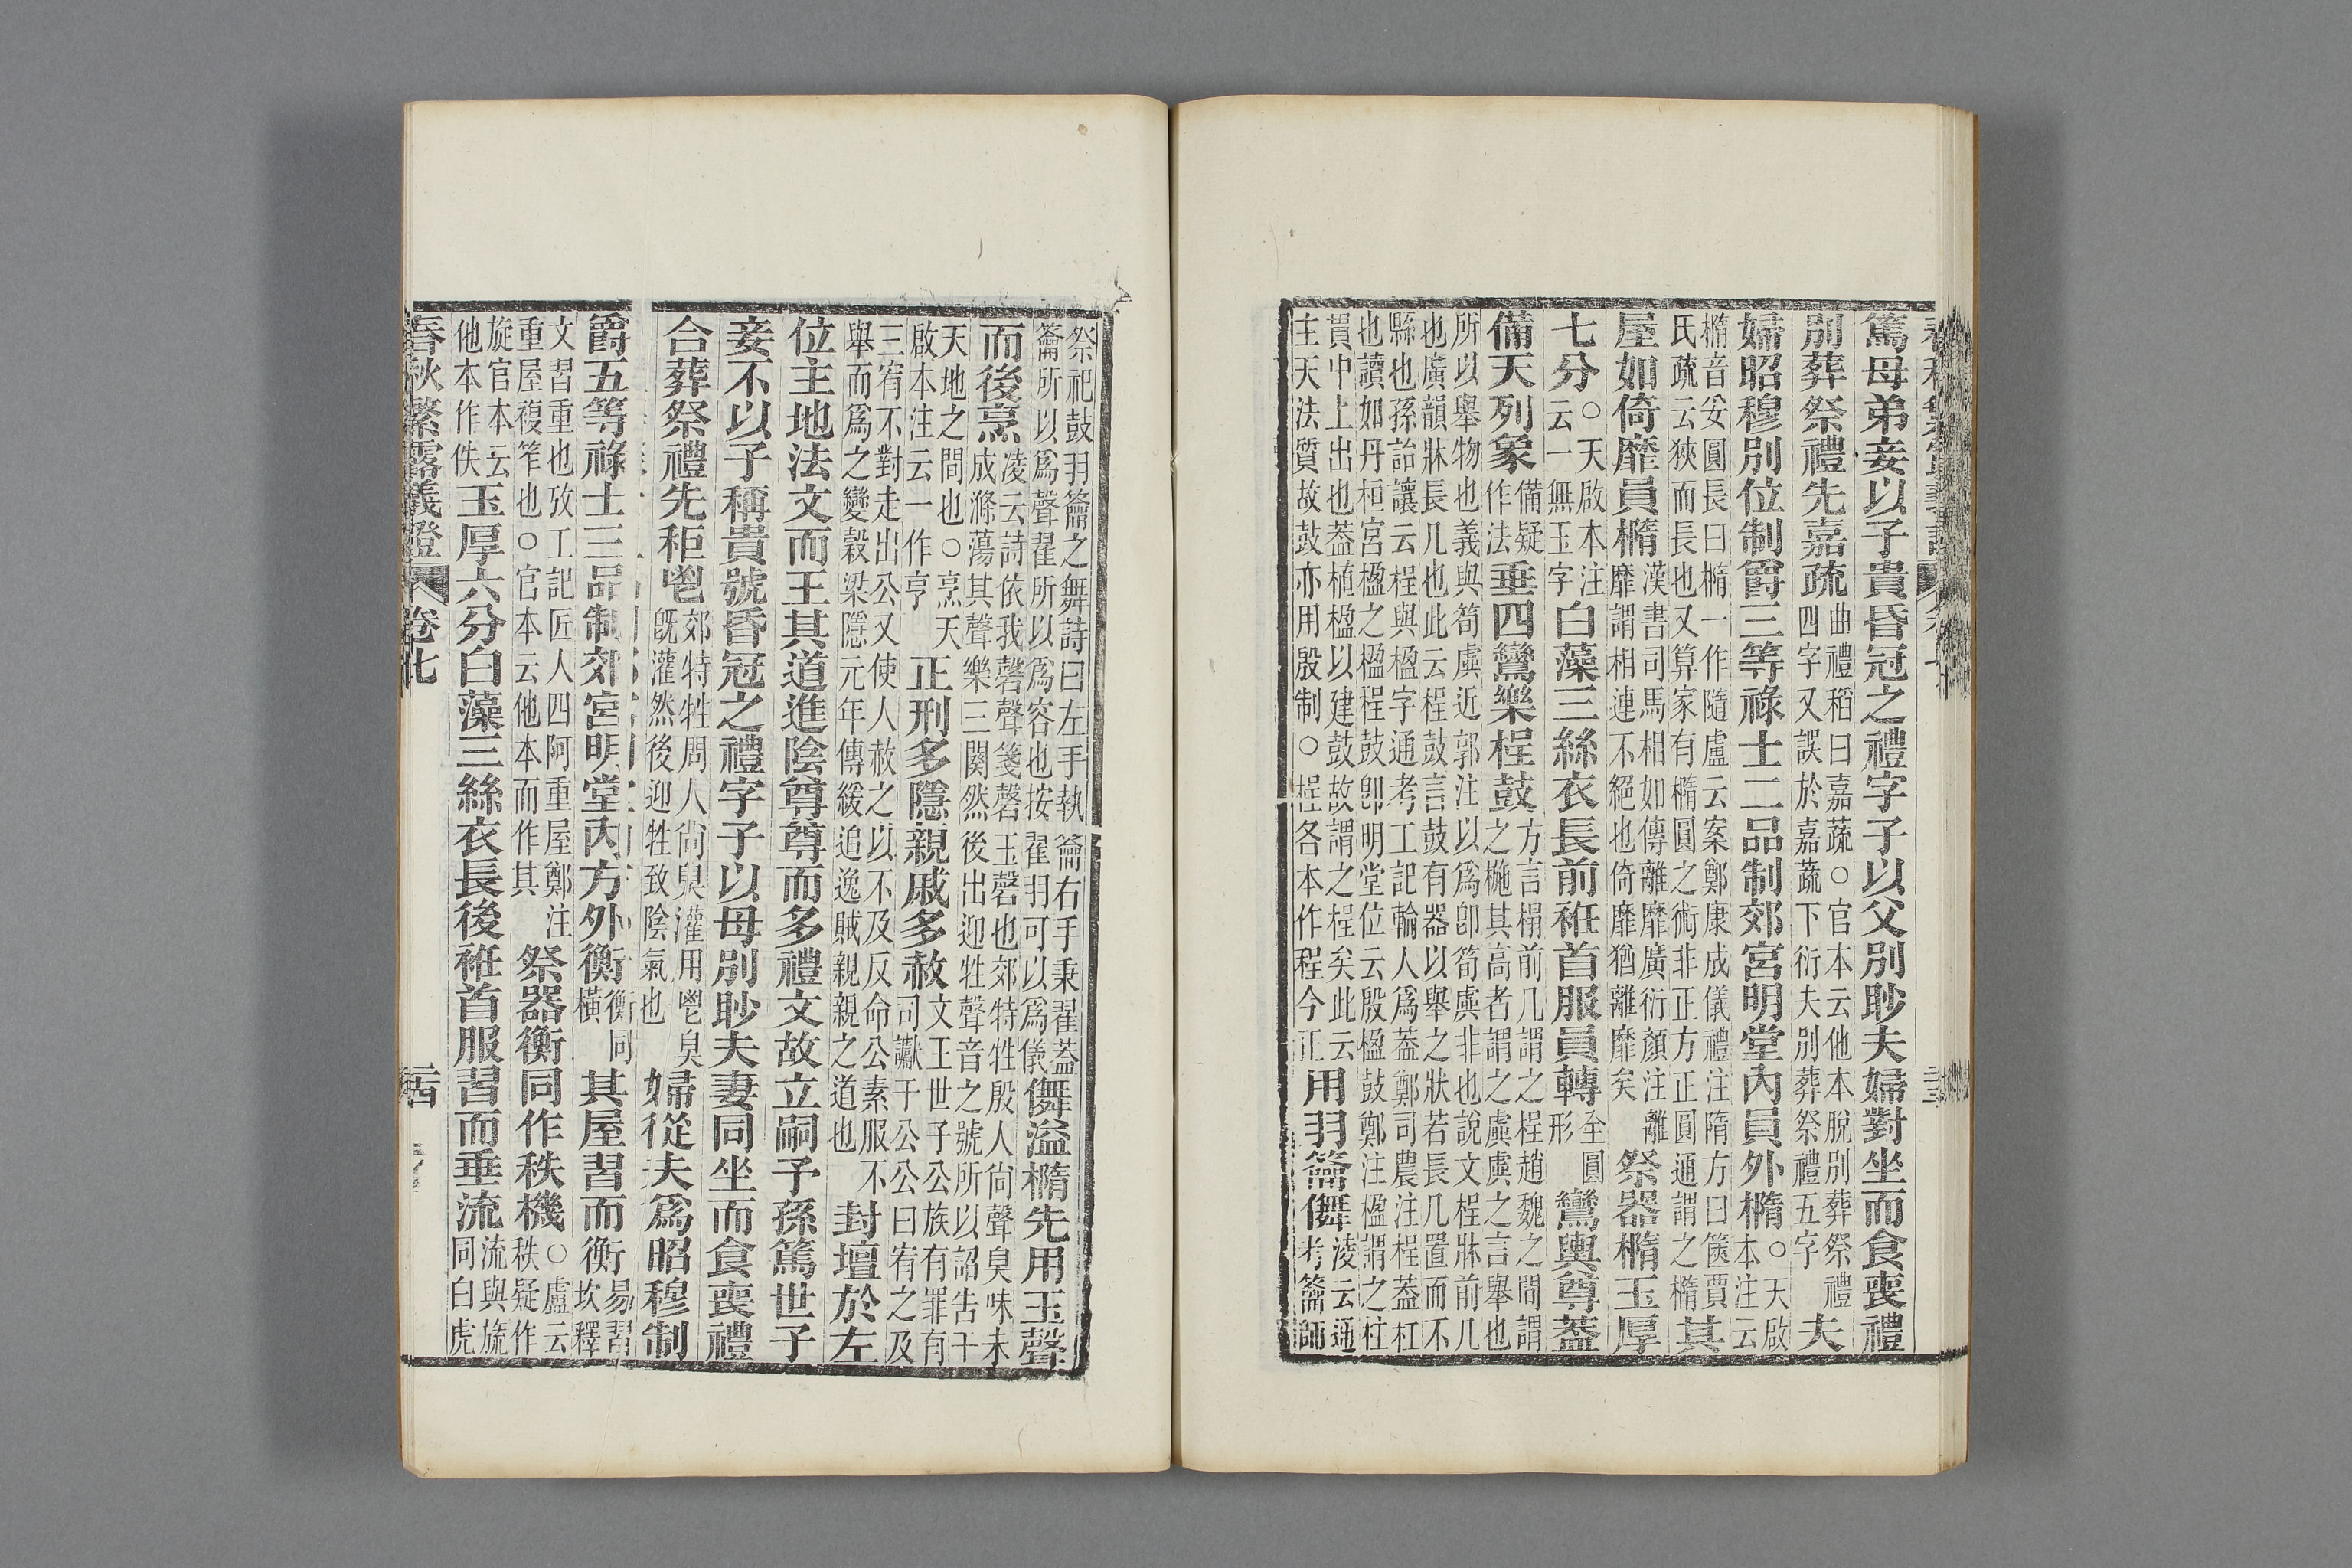 篤母弟妾以子貴昏冠之禮字子以父別眇夫婦對坐而食喪禮
別葬祭禮先嘉疏曲禮稻曰嘉蔬○官本云他本脫別葬祭禮四字又誤於嘉蔬下衍夫別葬祭禮五字夫
婦昭穆別位制爵三等祿士二品制郊宮明堂內員外橢○天啟本注云
橢音妥圓長曰橢一作隨盧云案鄭康成儀禮注隋方曰篋賈氏疏云狹而長也又算家有橢圓之術非正方正圓通謂之橢其
屋如倚靡員橢漢書司馬相如傳離靡廣衍顏注離靡謂相連不絕也倚靡猶離靡矣祭器橢玉厚
七分○天啟本注云一無玉字白藻三絲衣長前袵首服員轉全圓形鸞輿尊蓋
備天列象備疑作法垂四鸞樂桯鼓方言榻前几謂之桯趙魏之間謂之椸其高者謂之虡虡之言舉也
所以舉物也義與筍虡近郭注以為卽筍虡非也說文桯牀前几也廣韻牀長几也此云桯鼓言鼓有器以舉之狀若長几置而不
縣也孫詒讓云桯與楹字通考工記輪人爲蓋鄭司農注桯蓋杠也讀如丹桓宮楹之楹桯鼓卽明堂位云殷楹鼓鄭注楹謂之柱
貫中上出也蓋植楹以建鼓故謂之桯矣此云主天法質故鼓亦用殷制○桯各本作程今正用羽籥儛淩云通考籥師
祭祀鼓羽籥之舞詩曰左手執籥右手秉翟蓋籥所以爲聲翟所以爲容也按翟羽可以爲儀儛溢橢先用玉聲
而後烹凌云詩依我磬聲箋磬玉磬也郊特牲殷人尙聲臭味未成滌蕩其聲樂三闋然後出迎牲聲音之號所以詔告于
天地之間也○烹天啟本注云一作亨正刑多隱親戚多赦文王世子公族有罪有司讞于公公曰宥之及
三宥不對走出公又使人赦之以不及反命公素服不舉而爲之變穀梁隱元年傳緩追逸賊親親之道也封壇於左
位主地法文而王其道進陰尊尊而多禮文故立嗣予孫篤世子
妾不以子稱貴號昏冠之禮字子以母別眇夫妻同坐而食喪禮
合葬祭禮先秬鬯郊特牲周人尙臭灌用鬯臭既灌然後迎牲致陰氣也婦從夫爲昭穆制
爵五等祿士三品制郊宮明堂內方外衡衡同橫其屋習而衡易習坎釋
文習重也攷工記匠人四阿重屋鄭注重屋複笮也○官本云他本而作其祭器衡同作秩機○盧云秩疑作
旋官本云他本作佚玉厚六分白藻三絲衣長後袵首服習而垂流流與旒同白虎
春秋繁露義證 卷七 二四